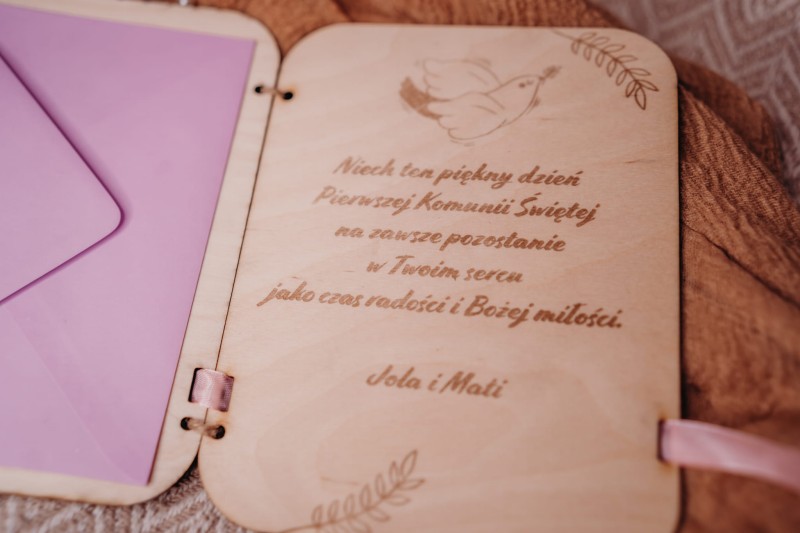 Niech ten piękny dzień
Pierwszej Komunii Świętej
na zawsze pozostanie
w Twoim sercu
jako czas radości i Bożej miłości.
Jola i Mati